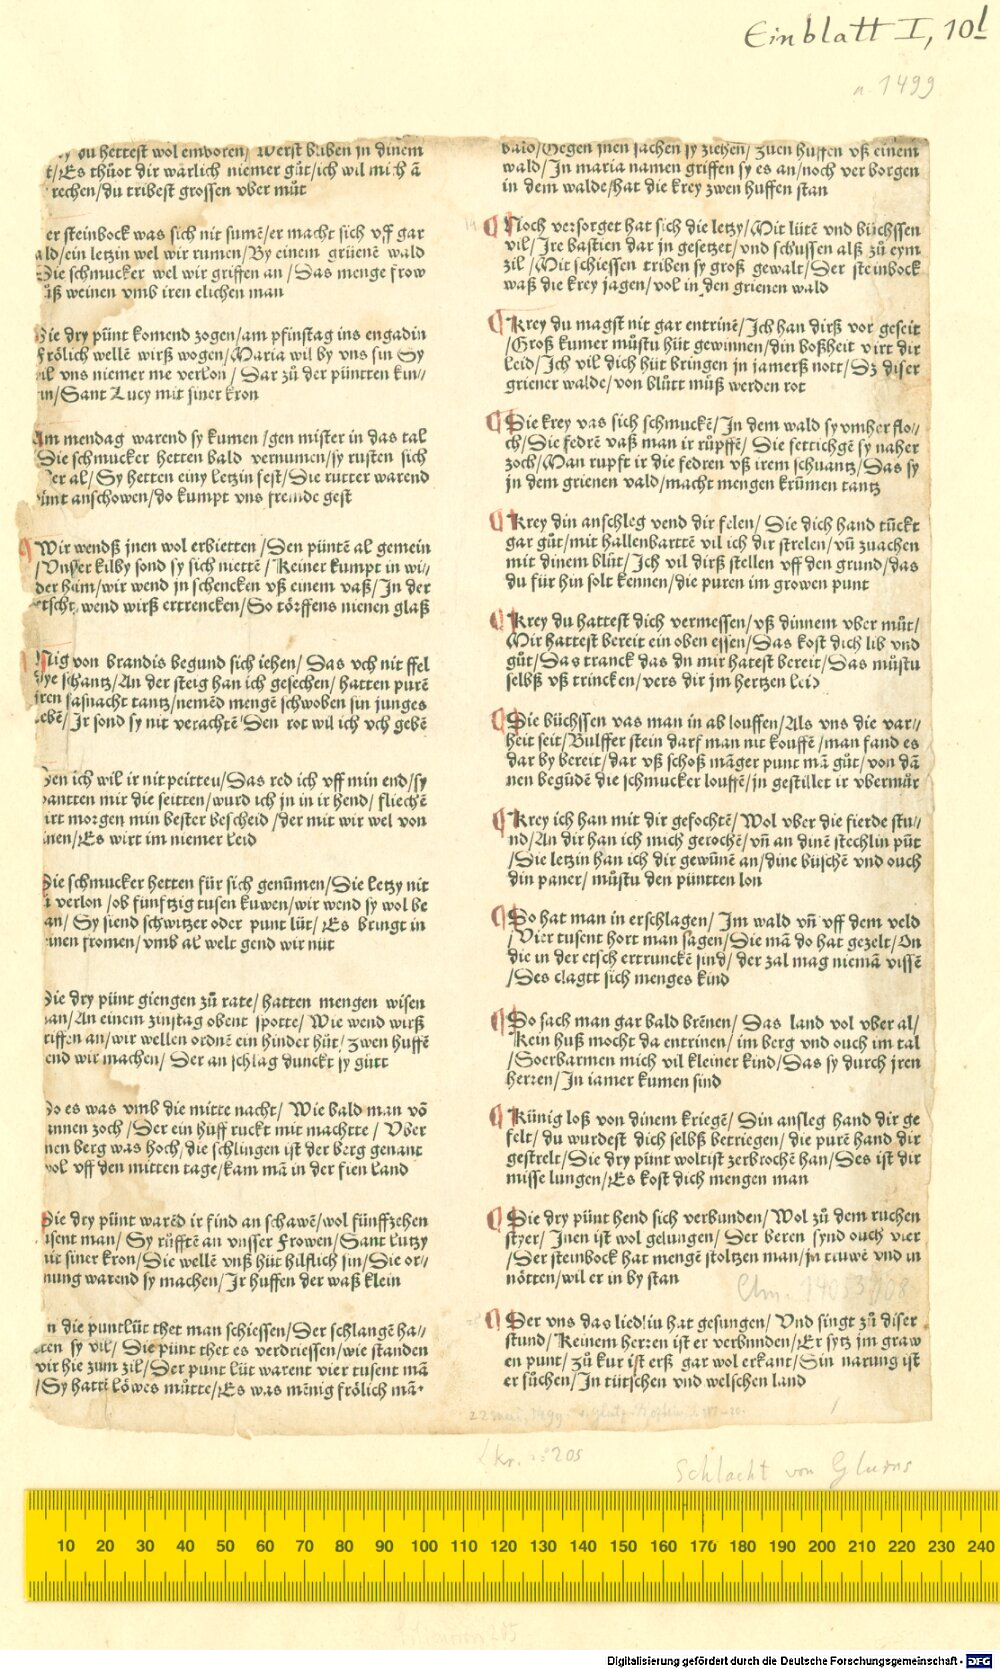 Einblatt I, 10l
a. 1499
du hettest wol emboren/ Werst buben jn dinem
t/Es thuot dir wärlich niemer guͦt/ich wil mich ā
rechen/du tribest grossen vber muͦt
er steinbock was sich nit sumē/er macht sich vff gar
ald/ein letzin wel wir rumen/By einem grüenē wald
Die schmucker wel wir griffen an /Das menge frow
uͦß weinen vmb iren elichen man
Die dry pünt komend zogen/am pfinstag ins engadin
Frölich wellē wirß wogen/Maria wil by vns sin Sy
il vns niemer me verlon/ Dar zuͦ der püntten kin//
in/Sant Lucy mit siner kron
Am mendag warend sy kumen /gen mister in das tal
Die schmucker hetten bald vernumen/sy rusten sich
er al/Sy hetten einy letzin fest/Die rutter warend
pünt anschowen/do kumpt vns fremde gest
Wir wendß jnen wol erbietten /Den püntē al gemein
/Vnser kilby sond sy sich niettē/Keiner kumpt in wi//
der ham/wir wend jn schencken vß einem vaß/In der
etsch, wend wirß ertrencken/So törffens nienen glaß
von brandis begund sich iehen/ Das vch nit ffel
dye schantz/An der steig han ich gesechen/ hatten purē
iren fasnacht tantz/nemēd mengē schwoben sin junges
lebē/ Ir sond sy nit verachtē Den rot wil ich vch gebē
Den ich wil ir nit peitten/Das red ich vff min end/sy
antten mir die seitten/wurd ich jn in ir hend/ fliechē
irt morgen min bester bescheid /der mit wir wel von
inen/Es wirt im niemer leid
Die schmucker hetten für sich genūmen/Die letzy nit
verlon /ob fünftzig tusen kuwen/wir wend sy wol be
an/ Sy siend schwitzer oder punt lüt/ Es bringt in
inen fromen/vmb al welt gend wir nüt
Die dry pünt giengen zuͦ rate/ hatten mengen wisen
an/An einem zinstag obent spotte/ Wie wend wirß
riffen an/wir wellen ordnē ein hinder huͦt/ zwen huffē
end wir machen/ Der an schlag dunckt sy gütt
Do es was vmb die mitte nacht/ Wie bald man vō
innen zoch /Der ein huff ruckt mit machtte / Vber
nen berg was hoch/die schlingen ist der berg genant
wol vff den mitten tage/kam mā in der fien land
Die dry pünt warēd ir find an schawē/wol fünffzehen
usent man/ Sy rüfftē an vnsser Frowen/Sant lutzy
mit siner kron/Die wellē vnß hüt hilflich sin/Die or//
nung warend sy machen/ Ir huffen der waß klein
n die puntlüt thet man schiessen/Der schlangē ha//
tten sy vil/ Die pünt thet es verdriessen/wie standen
wir hie zum zil/Der punt lüt warent vier tusent mā
/Sy hatti löwes mütte/Es was mēnig frölich mā
bald/Gegen jnen sachen sy ziehen/ zuen huffen vß einem
wald/In maria namen griffen sy es an/noch ver borgen
in dem walde/hat die krey zwen huffen stan
Noch versorget hat sich die letzy/Mit lütē vnd büchssen
vil/ Ire bastien dar jn gesetzet/vnd schussen alß zuͦ eym
zil /Mit schiessen triben sy groß gewalt/Der steinbock
waß die krey jagen/vol in den grienen wald
Krey du magst nit gar entrinē/Ich han dirß vor geseit
/Groß kumer müstu hüt gewinnen/din boßheit virt dir
leid/Ich vil dich hüt bringen in jamerß nott/Dz diser
griener walde/von blütt müß werden rot
Die krey vas sich schmuckē/In dem wald sy vmher flo//
ch/Die fedrē vaß man ir rüpffē/ Die fettichgē sy naher
zoch/Man rupft ir die fedren vß irem schuantz/Das sy
jn dem grienen vald/macht mengen krūmen tantz
Krey din anschleg vend dir felen/ Die dich hand tückt
gar guͦt/mit hallenbarttē vil ich dir strelen/ vn̄ zuachen
mit dinem bluͦt/Ich vil dirß stellen vff den grund/das
du für hin solt kennen/die puren im growen punt
Krey du hattest dich vermessen/vß dinnem vber muͦt/
Mir hattest bereit ein oben essen/Das kost dich lib vnd
guͦt/Das tranck das dn mir hatest bereit/Das müstu
selbß vß trincken/vers dir jm hertzen leid
Die büchssen vas man in ab louffen/Als vns die var//
heit seit/Bulffer stein darf man nit kouffē /man fand es
dar by bereit/dar vß schoß māger punt mā guͦt/von dā
nen begūdē die schmucker louffē/jn gestillet ir vbermuͦt
Krey ich han mit dir gefochtē/Wol vber die fierde stu//
nd/An dir han ich mich gerochē/vn̄ an dinē stechlin pūt
/Die letzin han ich dir gewūnē an/dine büschē vnd ouch
din paner/ müstu den püntten lon
So hat man in erschlagen/ Im wald vn̄ vff dem veld
/Vier tusent hort man sagen/Die mā do hat gezelt/On
die in der etsch ertrunckē sind/ der zal mag niemā vissē
/Des clagtt sich menges kind
Do sach man gar bald brēnen/ Das land vol vber al/
Kein huß mocht da entrinen/ im berg vnd ouch im tal
/Soerbarmen mich vil kleiner kind/Das sy durch jren
herren/In iamer kumen sind
Künig loß von dinem kriegē/ Din ansleg hand dir ge
felt/ du wurdest dich selbß betriegen/ die purē hand dir
gestrelt/Die dry pünt woltist zerbrochē han/Des ist dir
misse lungen/Es kost dich mengen man
Die dry pünt hend sich verbunden/Wol zuͦ dem ruchen
styer/ Inen ist wol gelungen/ Der beren synd ouch vier
/Der steinbock hat mengē stoltzen man/jn truwē vnd in
nötten/wil er in by stan
Der vns das liedlin hat gesungen/ Vnd singt zuͦ diser
stund/ Keinem herren ist er verbunden/Er sytz jm graw
en punt/ zuͦ kur ist erß gar wol erkant/Din narung ist
er suͦchen/In tütschen vnd welschen land
Clm. 14053/108
22 mai, 1499
Schlacht von Glurns
10 20 30 40 50 60 70 80 90 100 110 120 130 140 150 160 170 180 190 200 210 220 230 240
Digitalisierung gefördert durch die Deutsche Forschungsgemeinschaft - DFG